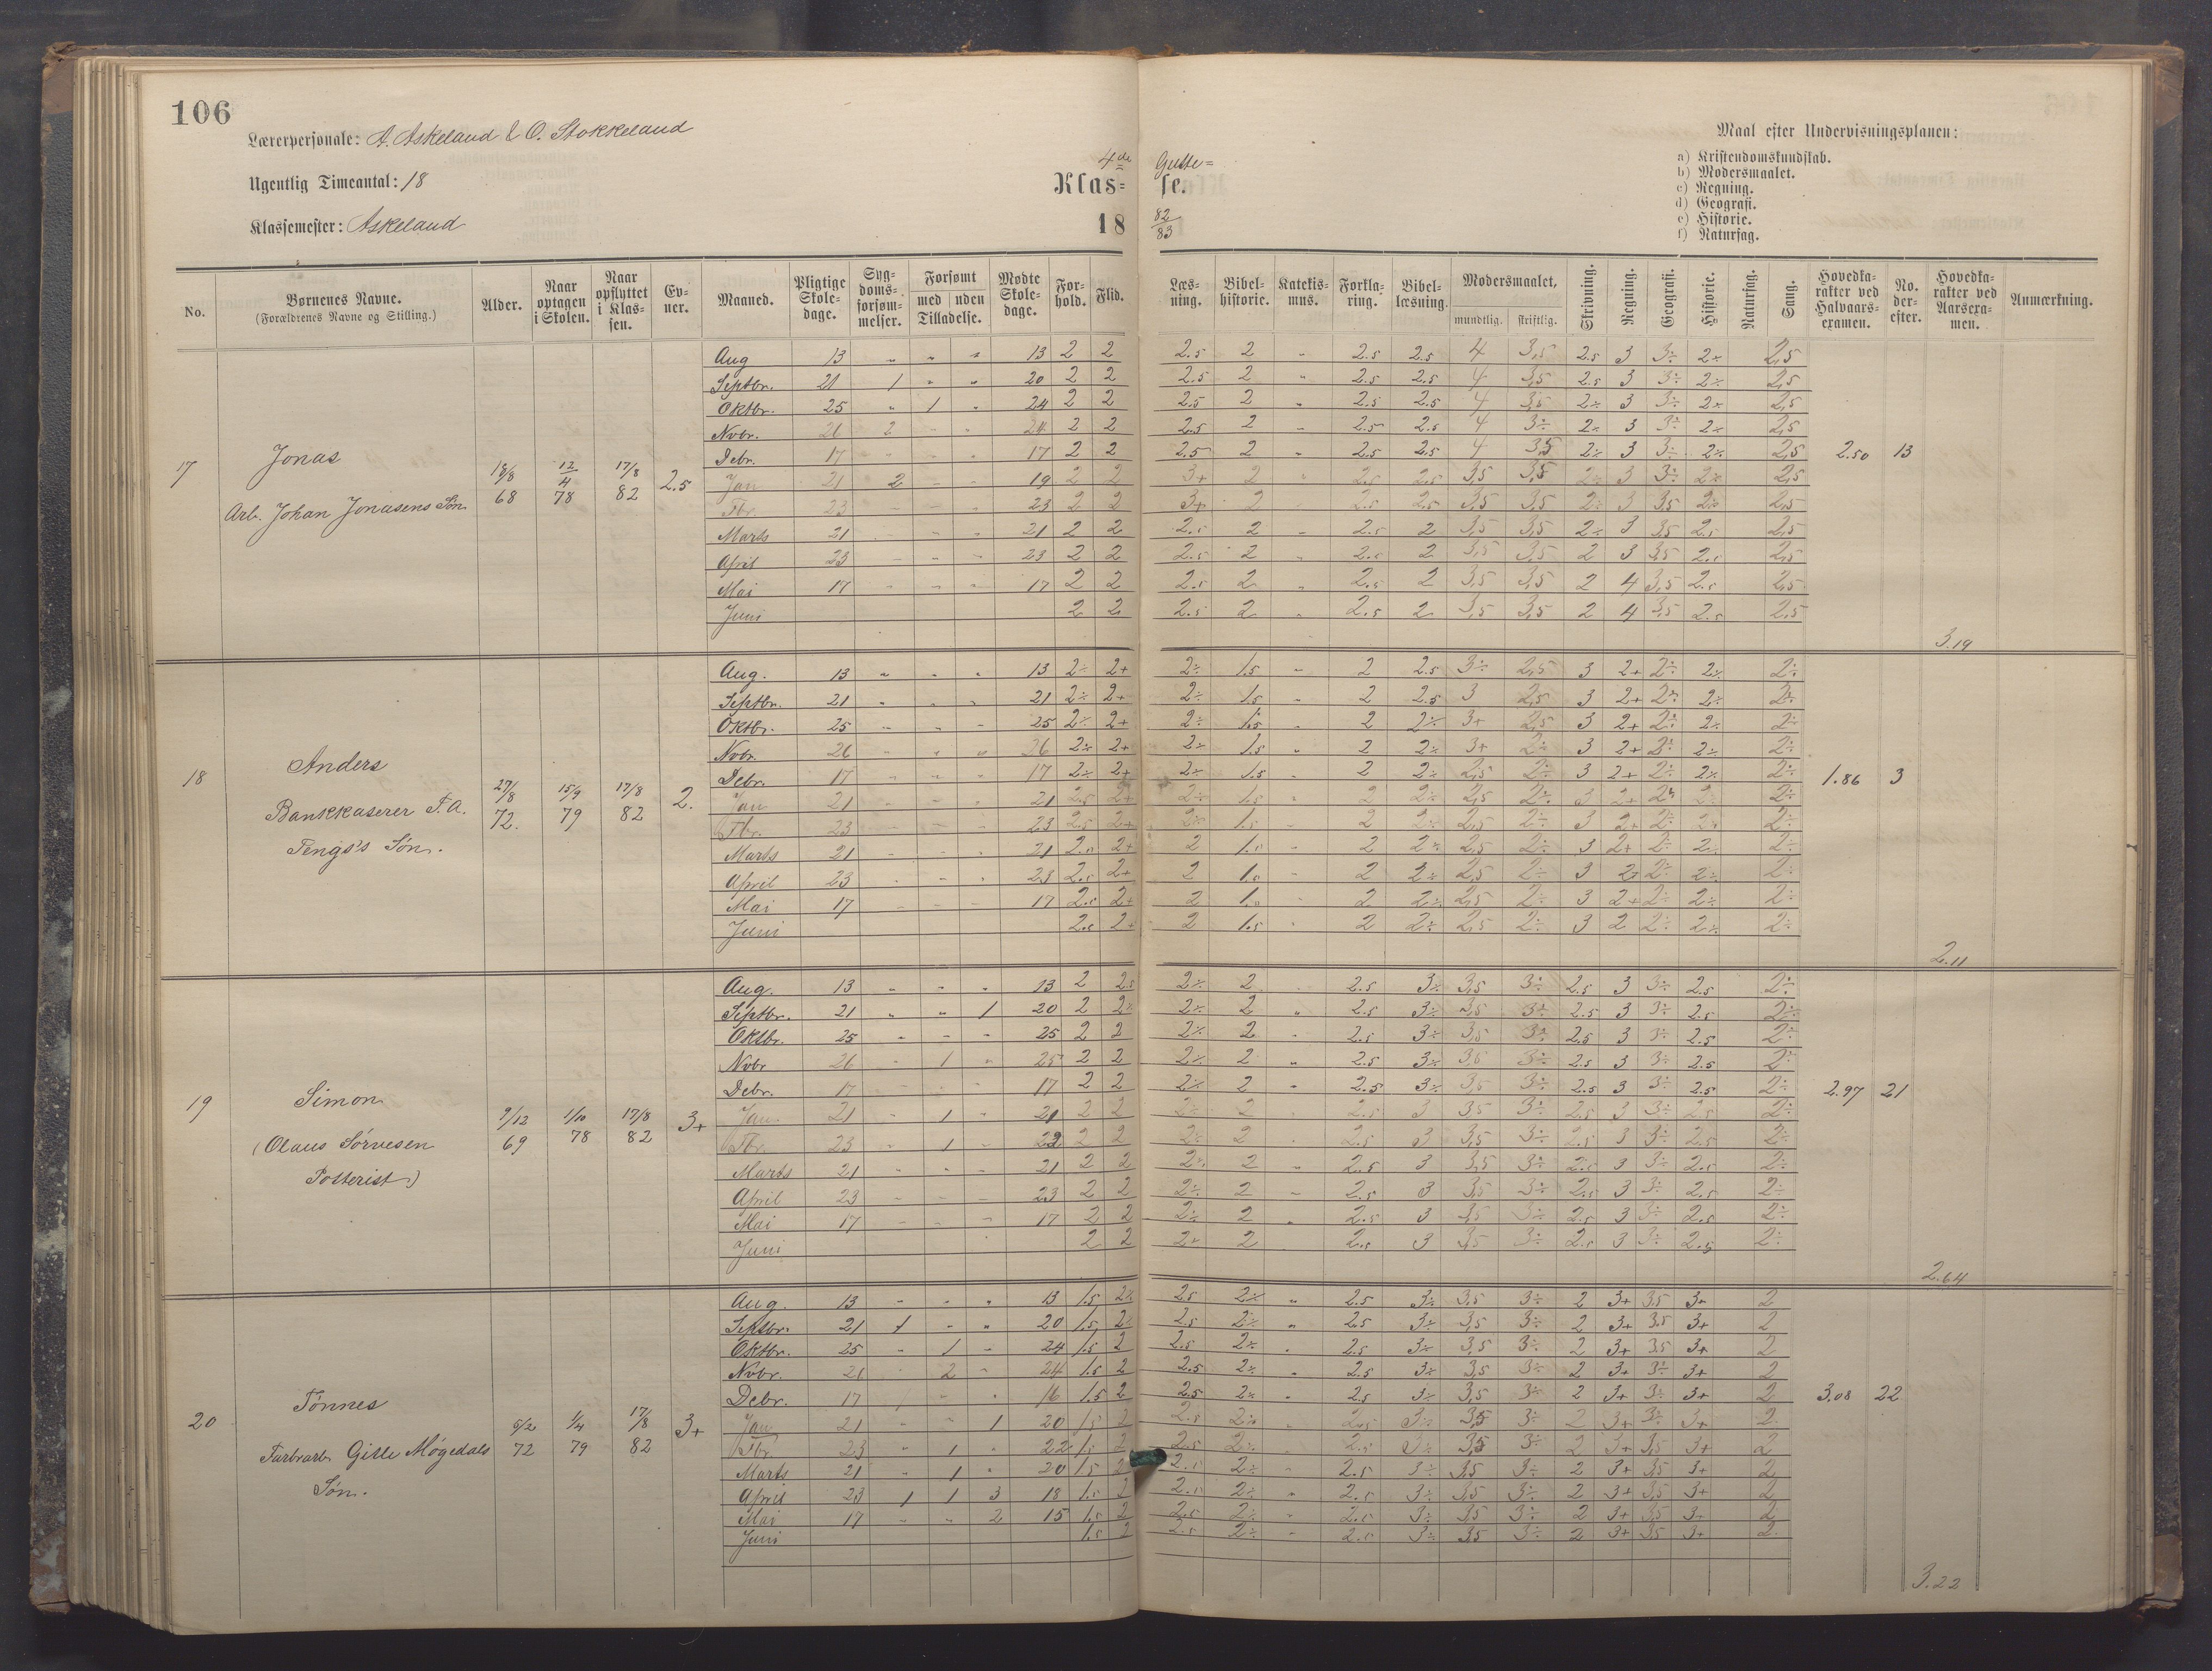 106
Lærerpersonale: A. Askeland & O. Stokkeland
Ugentlig Timeantal: 18
Klassemester: Askeland
4de Gutte=
Klas= se.
18 82/83
Maal efter Undervisningsplanen:
a) Kristendomskundskab.
b) Modersmaalet.
c) Regning.
d) Geografi.
e) Historie.
f) Naturfag.
No. Børnenes Navne. (Forældrenes Navne og Stilling.) Alder. Naar optagen i Skolen. Naar opflyttet i Klassen. Evner. Maaned. Pligtige Skoledage. Sygdomsforsømmelser. Forsømt med uden Tilladelse. Mødte Skoledage. Forhold. Flid. Læsning. Bibelhistorie. Katekismus. Forklaring. Bibellæsning. Modersmaalet, mundtlig. skriftlig. Skrivning. Regning. Geografi. Historie. Naturfag. Sang. Hovedkarakter ved Halvaarsexamen. No. derefter. Hovedkarakter ved Aarsexamen. Anmærkning.
17 Jonas
Arb. Johan Jonasens Søn
18/8 68 12/4 78 17/8 82 2.5
Aug 13 " " " 13 2 2 2.5 2 " 2.5 2.5 4 3,5 2.5 3 3÷ 2÷ 2,5
Septbr. 21 1 " " 20 2 2 2.5 2 " 2.5 2.5 4 3,5 2.5 3 3÷ 2÷ 2,5
Oktbr. 25 " 1 " 24 2 2 2.5 2 " 2.5 2.5 4 3,5 2÷ 3 3÷ 2÷ 2,5
Novbr. 26 2 " " 24 2 2 2.5 2 " 2.5 2.5 4 3÷ 2÷ 3 3÷ 2÷ 2,5
Debr. 17 " " " 17 2 2 2.5 2 " 2.5 2.5 4 3,5 2÷ 3 3÷ 2÷ 2,5 2.50 13
Jan 21 2 " " 19 2 2 3+ 2 " 2.5 2.5 3,5 3,5 2÷ 3 3÷ 2÷ 2,5
Fbr. 23 " " " 23 2 2 3+ 2 " 2.5 2.5 3,5 3,5 2÷ 3 3,5 2÷ 2,5
Marts 21 " " " 21 2 2 2.5 2 " 2.5 2 3,5 3,5 2÷ 3 3,5 2.5 2,5
April 23 " " " 23 2 2 2.5 2 " 2.5 2 3,5 3,5 2 3 3,5 2.5 2,5
Mai 17 " " " 17 2 2 2.5 2 " 2.5 2 3,5 3,5 2 4 3,5 2.5 2,5
Juni 2 2 2.5 2 " 2.5 2 3,5 3,5 2 4 3,5 2.5 2,5
3.19
18 Anders
Bankkaserer T.A.
Tengs's Søn.
27/8 72. 15/9 79 17/8 82 2.
Aug. 13 " " " 13 2÷ 2+ 2÷ 1.5 " 2 2.5 3÷ 2,5 3 2+ 2÷ 2÷ 2÷
Septbr. 21 " " " 21 2÷ 2+ 2÷ 1.5 " 2 2.5 3 2,5 3 2+ 2÷ 2÷ 2÷
Oktbr. 25 " " " 25 2÷ 2+ 2÷ 1.5 " 2 2÷ 3+ 2,5 3 2+ 2÷ 2÷ 2÷
Nvbr. 26 " " " 26 2÷ 2+ 2÷ 1.5 " 2 2÷ 3+ 2÷ 3 2+ 2÷ 2÷ 2÷
Debr. 17 " " " 17 2÷ 2+ 2÷ 1.5 " 2 2÷ 2,5 2÷ 3 2+ 2÷ 2÷ 2÷ 1.86 3
Jan 21 " " " 21 2.5 2+ 2÷ 1.5 " 2 2÷ 2,5 2÷ 3 2+ 2÷ 2÷ 2÷
Fbr. 23 " " " 23 2.5 2+ 2÷ 1.5 " 2 2÷ 2,5 2÷ 3 2+ 2÷ 2÷ 2÷
Marts 21 " " " 21 2.5 2+ 2 1.5 " 2 2÷ 2,5 2÷ 3 2+ 2÷ 2÷ 2÷
April 23 " " " 23 2.5 2+ 2 1.5 " 2 2÷ 2,5 2÷ 3 2+ 2÷ 2÷ 2÷
Mai 17 " " " 17 2.5 2+ 2 1.5 " 2 2÷ 2,5 2÷ 3 2+ 2÷ 2÷ 2÷
Juni 2.5 2+ 2 1.5 " 2 2÷ 2,5 2÷ 3 2 2÷ 2÷ 2÷
2.11
19 Simon
(Olaus Sørvesen
Potterist)
9/12 69 1/10 78 17/8 82 3+
Aug. 13 " " " 13 2 2.5 2÷ 2 " 2.5 3÷ 3,5 3÷ 2.5 3 3÷ 2.5 2÷
Septbr. 21 " " 1 20 2 2÷ 2÷ 2 " 2.5 3÷ 3,5 3÷ 2.5 3 3÷ 2.5 2÷
Oktbr. 25 " " " 25 2 2 2÷ 2 " 2.5 3÷ 3,5 3÷ 2.5 3 3÷ 2.5 2÷
Nvbr 26 " 1 " 25 2 2 2÷ 2 " 2.5 3÷ 3,5 3÷ 2.5 3 3÷ 2.5 2÷
Debr. 17 " " " 17 2 2 2÷ 2 " 2.5 3÷ 3,5 3÷ 2.5 3 3÷ 2.5 2÷ 2.97 21
Jan 21 " 1 " 21 2 2 2÷ 2 " 2.5 3 3,5 3÷ 2.5 3 3÷ 2.5 2÷
Fbr. 23 " 1 " 22 2 2 2÷ 2 " 2.5 3 3,5 3÷ 2.5 3 3÷ 2.5 2÷
Marts 21 " " " 21 2 2 2÷ 2 " 2.5 3 3,5 3÷ 2.5 3 3÷ 2.5 2÷
April 23 " " " 23 2 2 2÷ 2 " 2.5 3 3,5 3÷ 2.5 3 3÷ 2.5 2÷
Mai 17 " " " 17 2 2 2÷ 2 " 2.5 3 3,5 3÷ 2.5 3 3÷ 2.5 2÷
Juni 2 2 2+ 2 " 2.5 3 3,5 3÷ 2.5 3 3÷ 2.5 2÷
2.64
20 Tønnes
Farbrarb. Gitle Møgedals
Søn.
5/2 72 1/4 79 17/8 82 3+
Aug. 13 " " " 13 1.5 2÷ 2.5 2÷ " 2.5 3÷ 3,5 3÷ 2 3+ 3,5 3+ 2
Septbr. 21 1 " " 20 1.5 2÷ 2.5 2÷ " 2.5 3÷ 3,5 3÷ 2 3+ 3,5 3+ 2
Oktbr. 25 " 1 " 24 1.5 2 2.5 2÷ " 2.5 3÷ 3,5 3÷ 2 3+ 3,5 3+ 2
Nvbr. 26 " 2 " 24 1.5 2 2.5 2÷ " 2.5 3÷ 3,5 3÷ 2 3+ 3÷ 3+ 2
Debr. 17 1 " " 16 1.5 2 2.5 2÷ " 2.5 3÷ 3,5 3÷ 2 3+ 3÷ 3+ 2 3.08 22
Jan 21 " " 1 20 1.5 2 2.5 2÷ " 2.5 3÷ 3,5 3÷ 2 3+ 3÷ 3+ 2
Fbr 23 " 1 " 22 1.5 2 2.5 2÷ " 2.5 3÷ 3,5 3÷ 2 3+ 3,5 3+ 2
Marts 21 " 1 " 20 1.5 2 2.5 2÷ " 2.5 3÷ 3,5 3÷ 2 3+ 3,5 3+ 2
April 23 1 1 3 18 1.5 2 2.5 2÷ " 2.5 3÷ 3,5 3÷ 2 3+ 3,5 3+ 2
Mai 17 " " 2 15 1.5 2 2.5 2÷ " 2.5 3÷ 3,5 3÷ 2 3+ 3,5 3+ 2
Juni 1.5 2 2.5 2÷ " 2.5 3÷ 3,5 3÷ 2 3+ 3,5 3+ 2
3.22